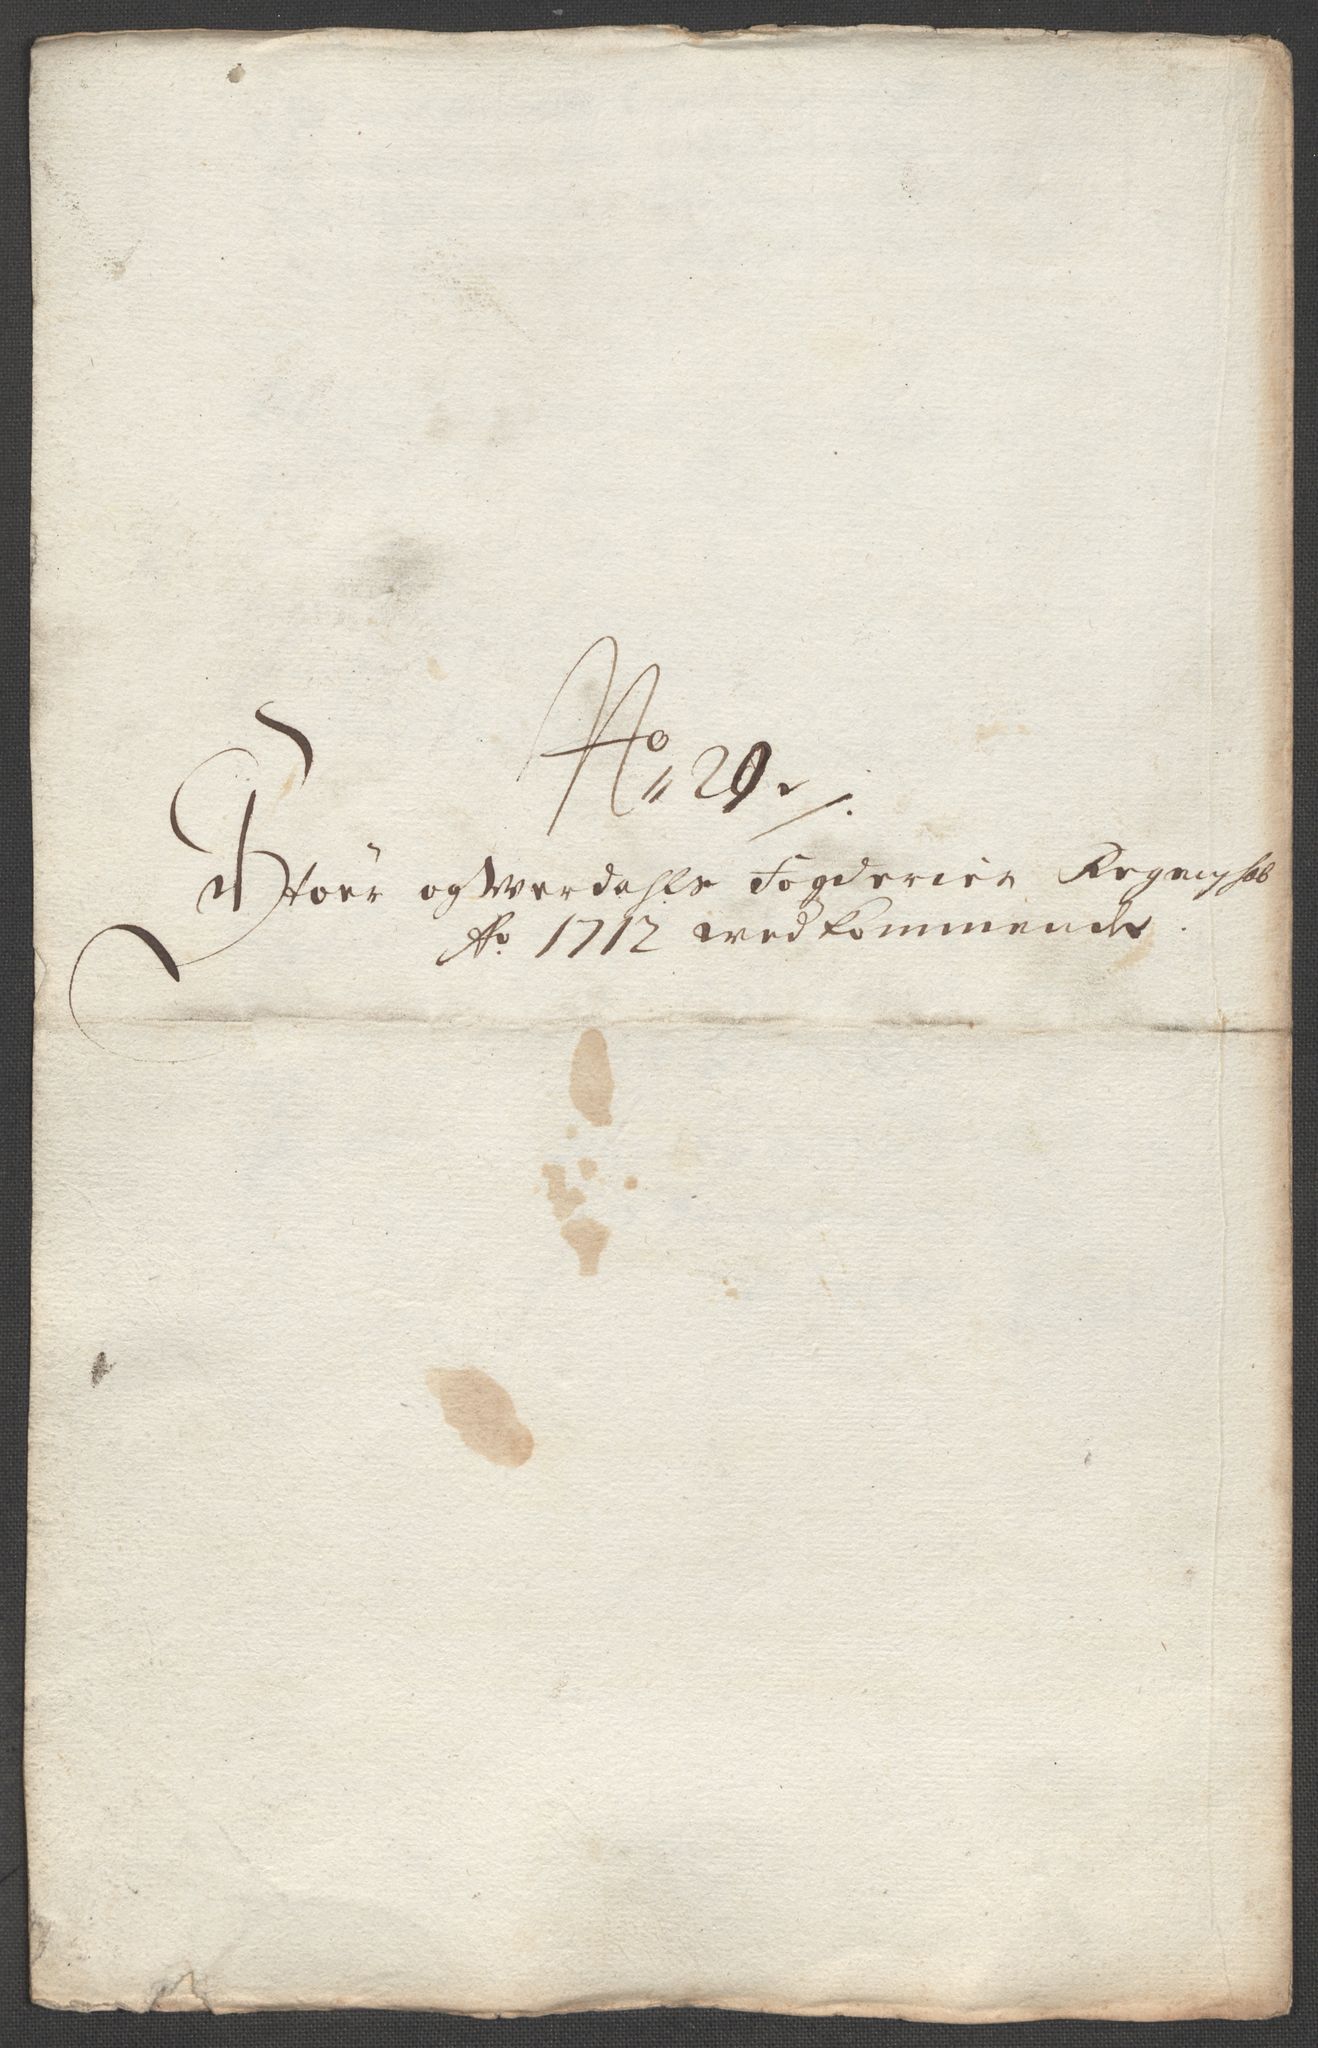 No 29.
Stoer og Werdahls Fogderier Regenschab
Ao. 1712 wedkommende.